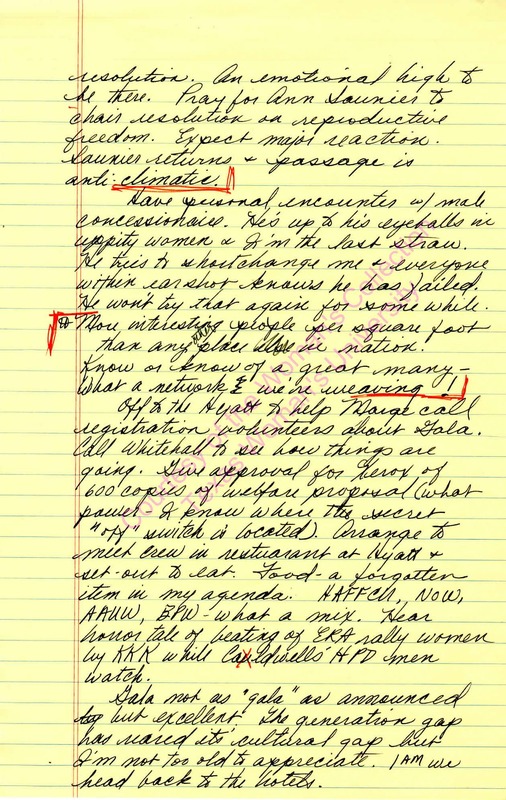 resolution. An emotional high to
be there. Pray for Ann Saunier to
chair resolution on reproductive
freedom. Expect major reaction.
Saunier returns & passage is
anti-climatic.
Have personal encounter w/ male
concessionaire. He's up to his eyeballs in
uppity women & I'm the last straw.
He tries to shortchange me & everyone
within earshot knows he has failed.
He won't try that again for some while.
More interesting people per square foot
than any place else in nation.
Know or know of a great many-
what a network we're weaving!
Off to the Hyatt to help Marge call
registration volunteers about Gala.
Call Whitehall to see how things are
going. Give approval for Xerox of
600 copies of welfare proposal (what
power I know where the secret
"off" switch is located). Arrange to
meet crew in restuarant at Hyatt &
set-out to eat. Food-a forgotten
item in my agenda. HAFFCH, NOW,
AAUW, BPW-what a mix. Hear
horror tale of beating of ERA rally women
by KKK while Caldwell's HPD men
watch.
Gala not as "gala" as announced
but excellent. The generation gap
has reared it's cultural gap but
I'm not too old to appreciate. 1 AM we
head back to the hotels.
Courtesy of the Woman's Collection
Texas Woman's University